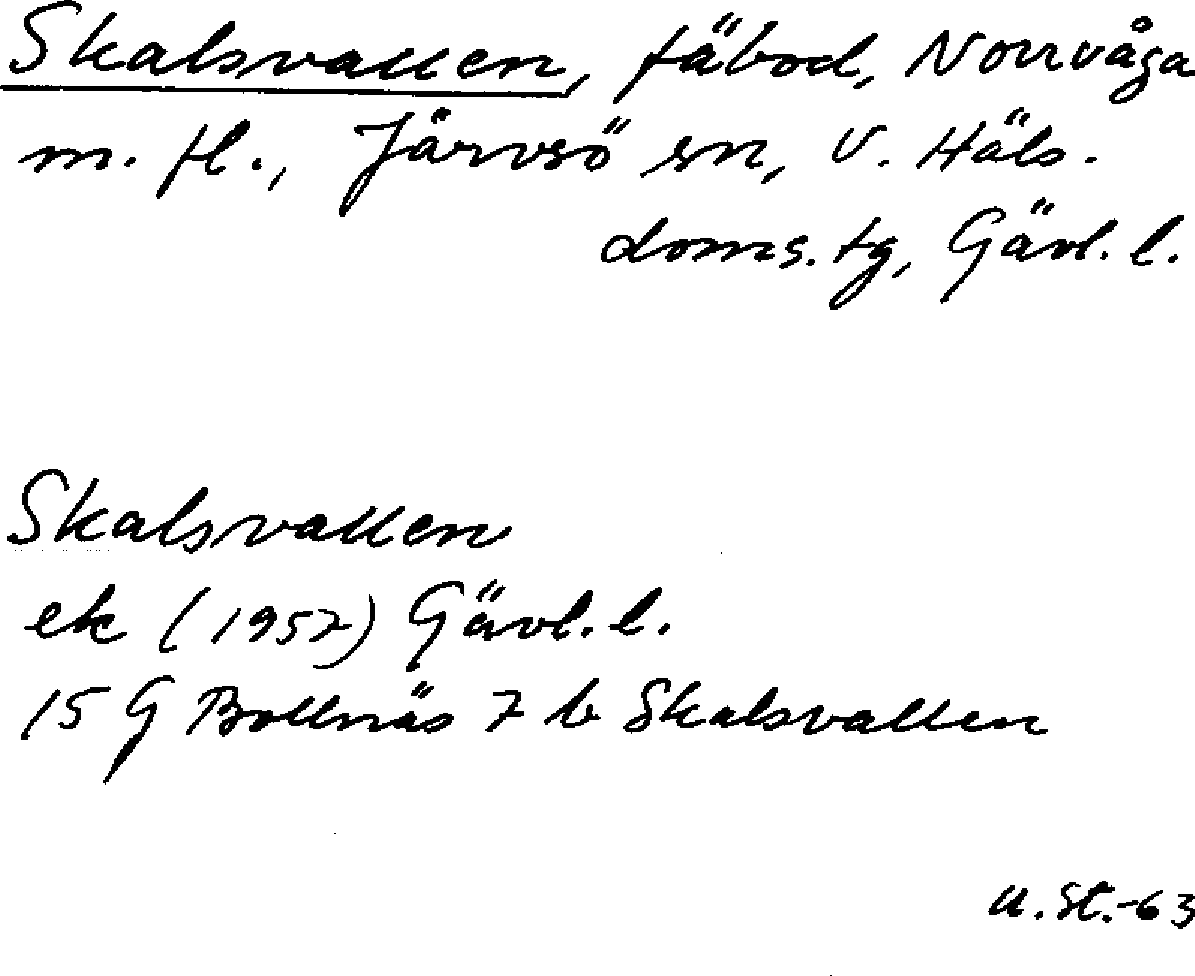 Skalsvallen, fäbod, Norrvåga
m. fl., Järvsö sn, V. Häls.
doms. tg, Gävl. l.
Skalsvallen
ek (1957) Gävl. l.
15 G Bollnäs 7 b Skalsvallen
U. St.-63